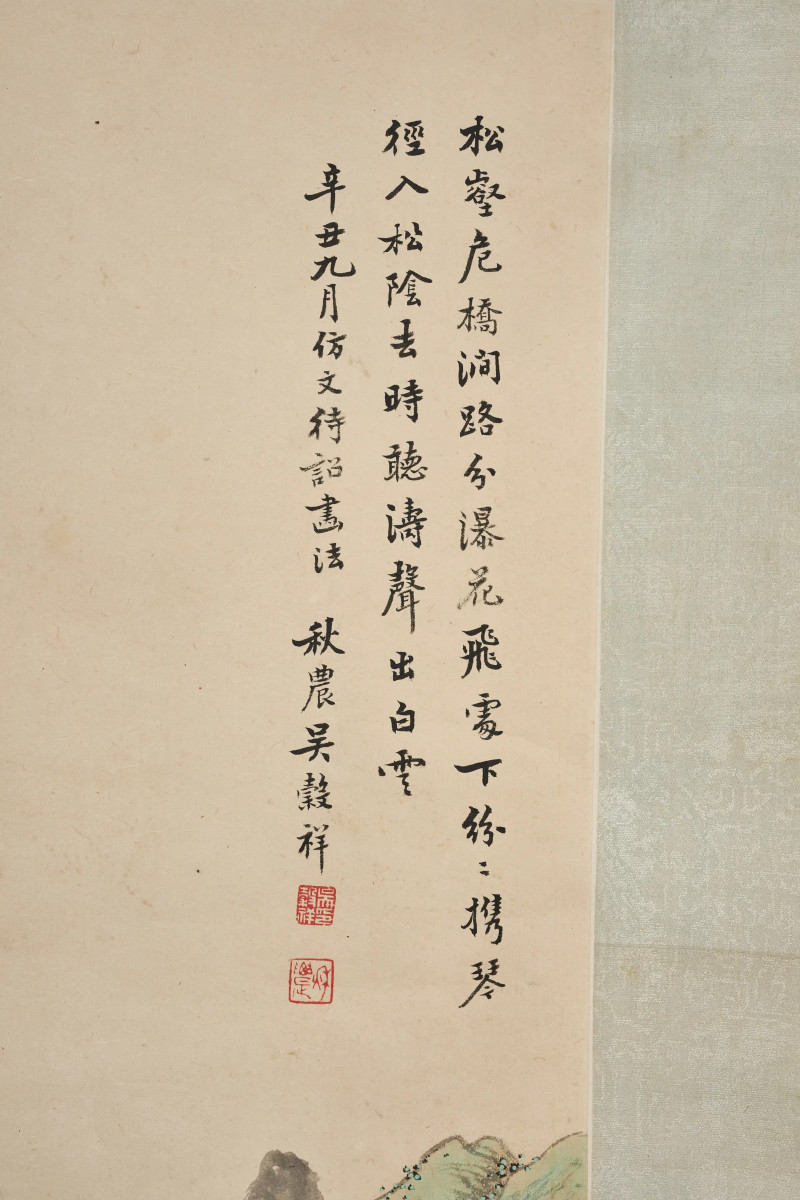 松壑危橋澗路分瀑花飛處下紛〻攜琴
徑入松陰去時聽濤聲出白雲
辛丑九月仿文待詔畫法 秋農吳穀祥
吳穀祥印
秋農